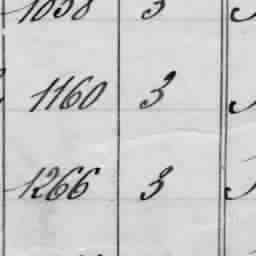 1058 3
1160 3
1266 3